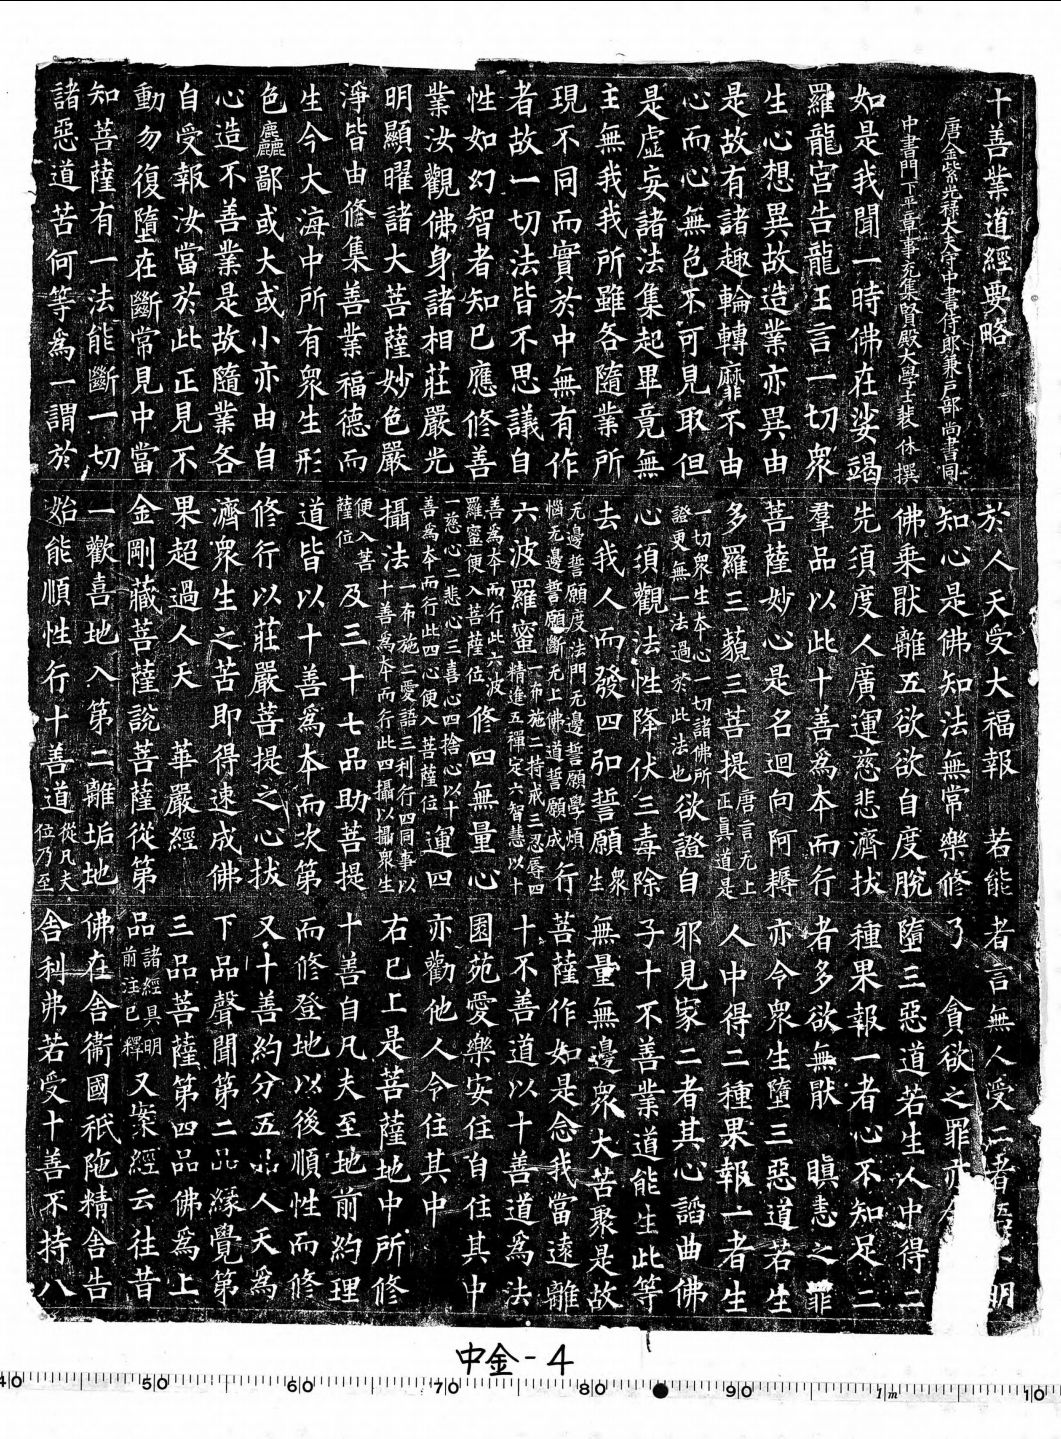 十善業道經要略
唐金紫光祿大夫守中書侍郎兼戶部尚書同
中書門下平章事充集賢殿大學士裴休撰
如是我聞一時佛在娑竭
羅龍宮告龍王言一切眾
生心想異故造業亦異由
是故有諸趣輪轉靡不由
心而心無色不可見取但
是虛妄諸法集起畢竟無
主無我我所雖各隨業所
現不同而實於中無有作
者故一切法皆不思議自
性如幻智者知已應修善
業汝觀佛身諸相莊嚴光
明顯曜諸大菩薩妙色嚴
淨皆由修集善業福德而
生今大海中所有眾生形
色麤鄙或大或小亦由自
心造不善業是故隨業各
自受報汝當於此正見不
動勿復墮在斷常見中當
知菩薩有一法能斷一切
諸惡道苦何等為一謂於
於人天受大福報 若能
知心是佛知法無常樂修
佛乘猒離五欲欲自度脫
先須度人廣運慈悲濟拔
羣品以此十善為本而行
菩薩妙心是名迴向阿耨
多羅三藐三菩提唐言无上正真道是
一切眾生本心一切諸佛所證更無一法過於此法也欲證自
心須觀法性降伏三毒除
去我人而發四弘誓願眾生
无邊誓願度法門无邊誓願學煩惱无邊誓願斷无上佛道誓願成行
六波羅蜜一布施二持戒三忍辱四精進五禪定六智慧以十
善為本而行此六波羅蜜便入菩薩位修四無量心
一慈心二悲心三喜心四捨心以十善為本而行此四心便入菩薩位運四
攝法一布施二愛語三利行四同事以十善為本而行此四攝以攝眾生
便入菩薩位及三十七品助菩提
道皆以十善為本而次第
修行以莊嚴菩提之心拔
濟眾生之苦即得速成佛
果超過人天 華嚴經
金剛藏菩薩說菩薩從第
一歡喜地入第二離垢地
始能順性行十善道從凡夫位乃至
者言無人受二者語不明
乃 貪欲之罪亦
墮三惡道若生人中得二
種果報一者心不知足二
者多欲無猒 瞋恚之罪
亦令眾生墮三惡道若生
人中得二種果報一者生
邪見家二者其心諂曲佛
子十不善業道能生此等
無量無邊眾大苦聚是故
菩薩作如是念我當遠離
十不善道以十善道為法
園苑愛樂安住自住其中
亦勸他人令住其中
右已上是菩薩地中所修
十善自凡夫至地前約理
而修登地以後順性而修
又十善約分五品人天為
下品聲聞第二品緣覺第
三品菩薩第四品佛為上
品諸經具明前注已釋又案經云往昔
佛在舍衛國祇陁精舍告
舍利弗若受十善不持八
中金-4
40 50 60 70 80 90 1m 10